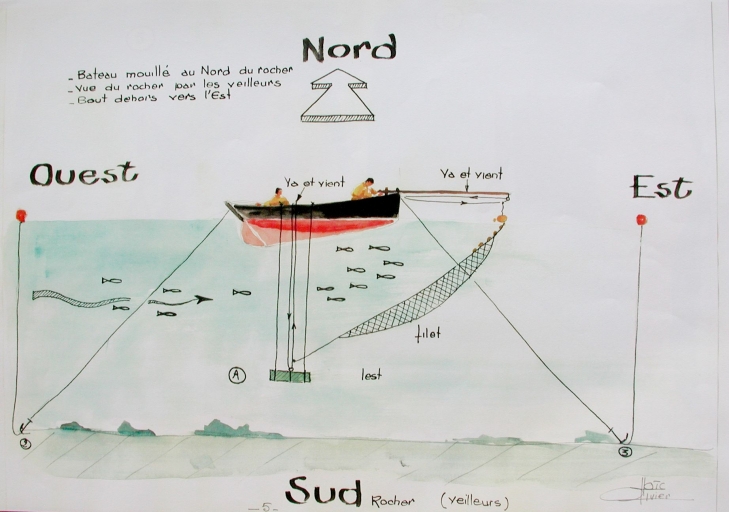 Nord
- Bateau mouillé au Nord du rocher
- Vue du rocher par les veilleurs
- Bout dehors vers l'Est
Ouest
Va et vient
Va et vient
Est
filet
A
lest
Sud Rocher (veilleurs)
- 5 -